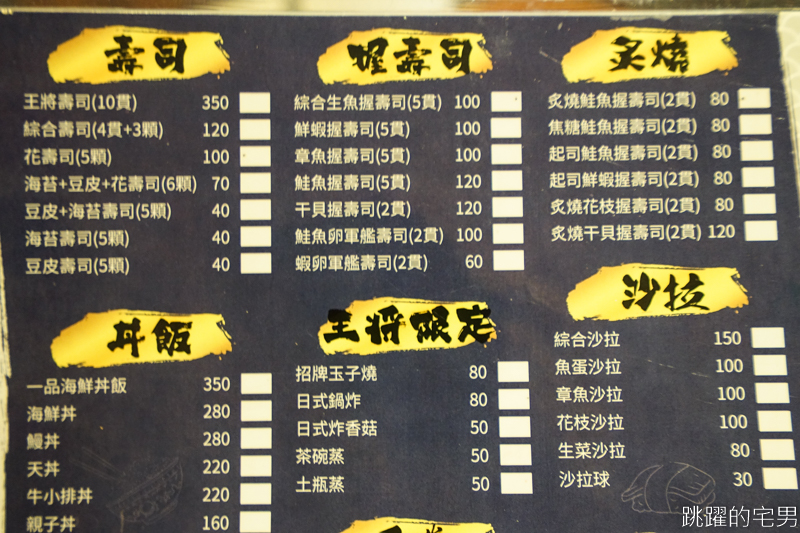 壽司
王將壽司(10貫) 350
綜合壽司(4貫+3顆) 120
花壽司(5顆) 100
海苔+豆皮+花壽司(6顆) 70
豆皮+海苔壽司(5顆) 40
海苔壽司(5顆) 40
豆皮壽司(5顆) 40
握壽司
綜合生魚握壽司(5貫) 100
鮮蝦握壽司(5貫) 100
章魚握壽司(5貫) 100
鮭魚握壽司(5貫) 120
干貝握壽司(2貫) 120
鮭魚卵軍艦壽司(2貫) 100
蝦卵軍艦壽司(2貫) 60
炙燒
炙燒鮭魚握壽司(2貫) 80
焦糖鮭魚握壽司(2貫) 80
起司鮭魚握壽司(2貫) 80
起司鮮蝦握壽司(2貫) 80
炙燒花枝握壽司(2貫) 80
炙燒干貝握壽司(2貫) 120
丼飯
一品海鮮丼飯 350
海鮮丼 280
鰻丼 280
天丼 220
牛小排丼 220
親子丼 160
王將限定
招牌玉子燒 80
日式鍋炸 80
日式炸香菇 50
茶碗蒸 50
土瓶蒸 50
沙拉
綜合沙拉 150
魚蛋沙拉 100
章魚沙拉 100
花枝沙拉 100
生菜沙拉 80
沙拉球 30
跳躍的宅男